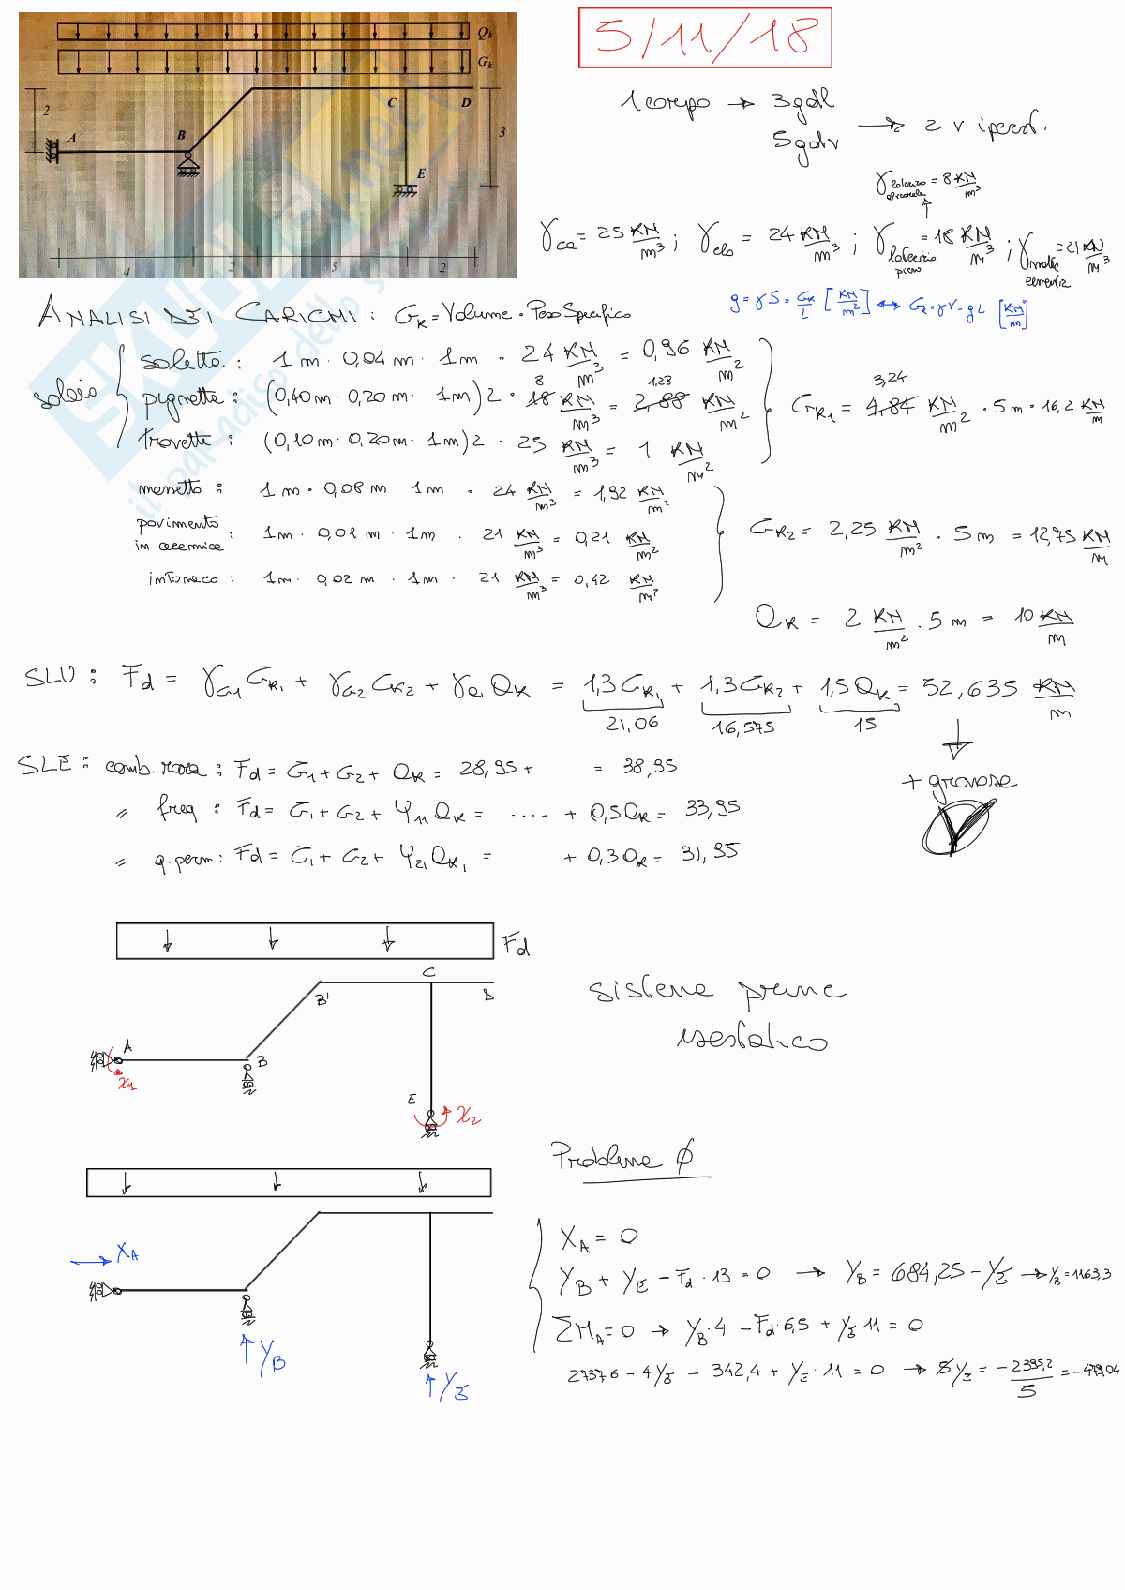 5/11/18
Qk
Gk
2
A
B
C
D
3
E
4
2
5
2
1 corpo → 3 gdl
5 gdv → 2 v iperst.
γ = 8 KN/m³
γca = 25 KN/m³ ; γcls = 24 KN/m³ ; γlaterizio pieno = 18 KN/m³ ; γ = 21 KN/m³
ANALISI DEI CARICHI: GK = Volume · Peso Specifico
solaio
soletta: 1m · 0,04m · 1m · 24 KN/m³ = 0,96 KN/m²
pignatte: (0,40m · 0,20m · 1m)2 · 18 8 KN/m³ = 2,88 1,28 KN/m²
travetti: (0,10m · 0,20m · 1m)2 · 25 KN/m³ = 1 KN/m²
GK1 = 4,84 3,24 KN/m² · 5m = 16,2 KN/m
massetto: 1m · 0,08m 1m · 24 KN/m³ = 1,92 KN/m²
pavimento in ceramica: 1m · 0,01m · 1m · 21 KN/m³ = 0,21 KN/m²
intonaco: 1m · 0,02m · 1m · 21 KN/m³ = 0,42 KN/m²
GK2 = 2,25 KN/m² · 5m = 12,75 KN/m
QK = 2 KN/m² · 5m = 10 KN/m
SLU: Fd = γG1 GK1 + γG2 GK2 + γQ QK = 1,3GK1 + 1,3GK2 + 1,5QK = 52,635 KN/m
21,06 16,575 15
+ gravosa
SLE: comb. rara: Fd = G1 + G2 + QK = 28,95 + = 38,95
" freq: Fd = G1 + G2 + Ψ11QK = .... + 0,5QK = 33,95
" q.perm: Fd = G1 + G2 + Ψ21QK1 = + 0,3QK = 31,95
Fd
C
B'
D
A
B
X1
E
X2
sistema princ.
isostatico
Problema ∅
XA
YB
YE
XA = 0
YB + YE - Fd · 13 = 0 → YB = 684,25 - YE → YB = 1163,3
ΣMA = 0 → YB · 4 - Fd · 6,5 + YE · 11 = 0
2737,6 - 4YE - 342,4 + YE · 11 = 0 → 5YE = -2395,2/5 = -479,04